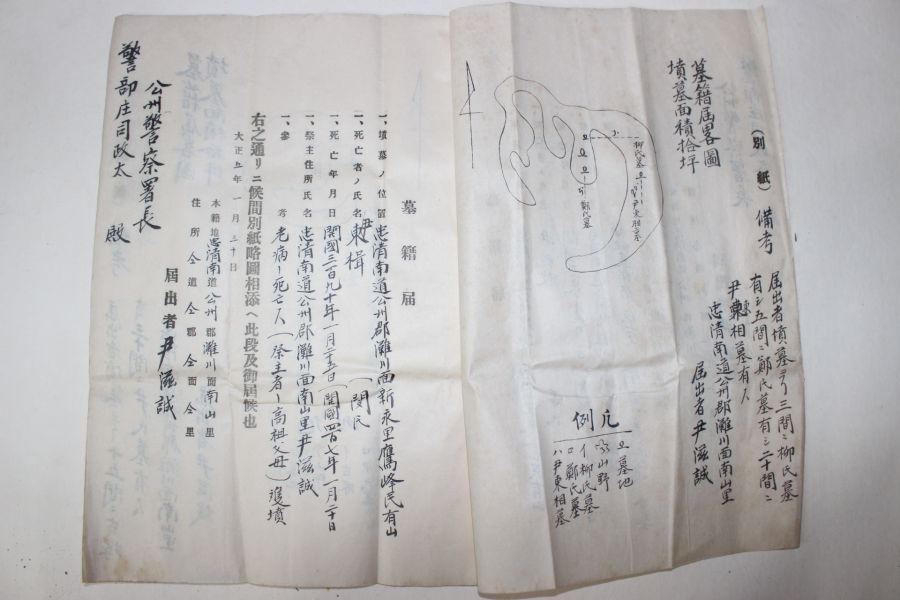 (別紙)
墓籍届畧圖
墳墓面積拾坪
柳氏墓
鄭氏墓
尹東相墓
備考
届出者墳墓ヨリ三間ニ柳氏墓
有シ五間ニ鄭氏墓有シ二十間ニ
尹東相墓有ス
忠清南道公州郡灘川面南山里
届出者 尹滋誠
凡例
墓地
山野
イ 柳氏墓
ロ 鄭氏墓
ハ 尹東相墓
墓籍届
一、墳墓ノ位置 忠清南道公州郡灘川面新永里鷹峰民有山
一、死亡者ノ氏名 尹東楫 (閔氏
一、死亡年月日 開國三百九十年一月二十五日(開國四百七年一月二十日
一、祭主住所氏名 忠清南道公州郡灘川面南山里尹滋誠
一、參考 老病ノ死亡人(祭主者ノ高祖父母)雙墳
右之通リニ候間別紙略圖相添ヘ此段及御届候也
大正五年一月三十日
本籍地 忠清南道公州郡灘川面南山里
住所 仝道仝郡仝面仝里
届出者 尹滋誠
公州警察署長
警部庄司政太 殿